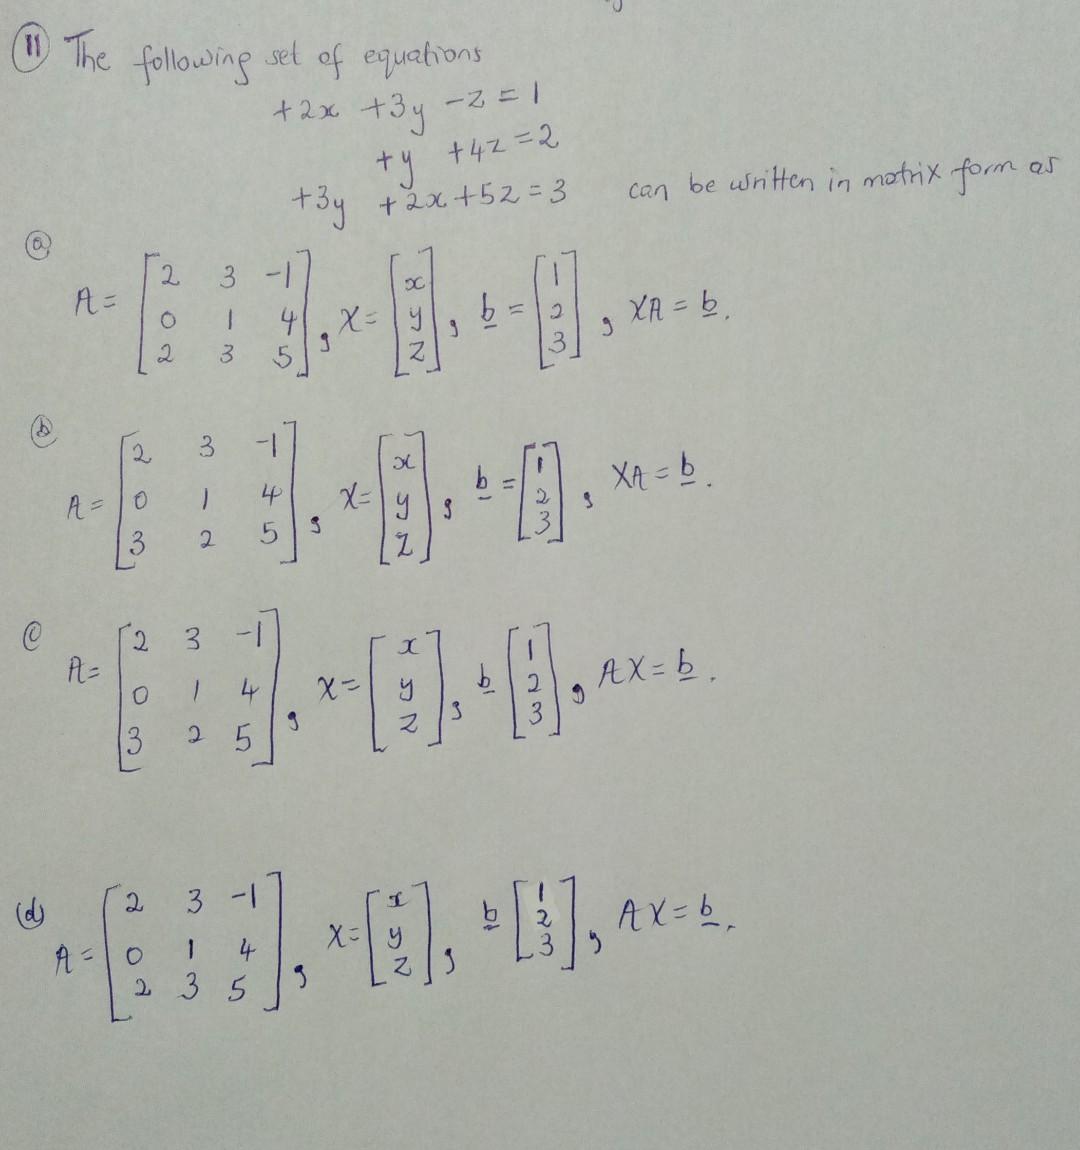 11 The following set of equations
+2x +3y -z = 1
+y +4z = 2
+3y +2x +5z = 3 can be written in matrix form as
(a)
A = [2 3 -1
0 1 4
2 3 5], X = [x
y
z], b = [1
2
3], XA = b.
(b)
A = [2 3 -1
0 1 4
3 2 5], X = [x
y
z], b = [1
2
3], XA = b.
(c)
A = [2 3 -1
0 1 4
3 2 5], X = [x
y
z], b [1
2
3], AX = b.
(d)
A = [2 3 -1
0 1 4
2 3 5], X = [x
y
z], b [1
2
3], AX = b.